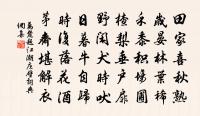 田家喜秋熟
歲晏林葉稀
禾黍積場圃
楂梨垂戶扉
野閑犬時吠
日暮牛自歸
時復落花酒
茅齋堪解衣